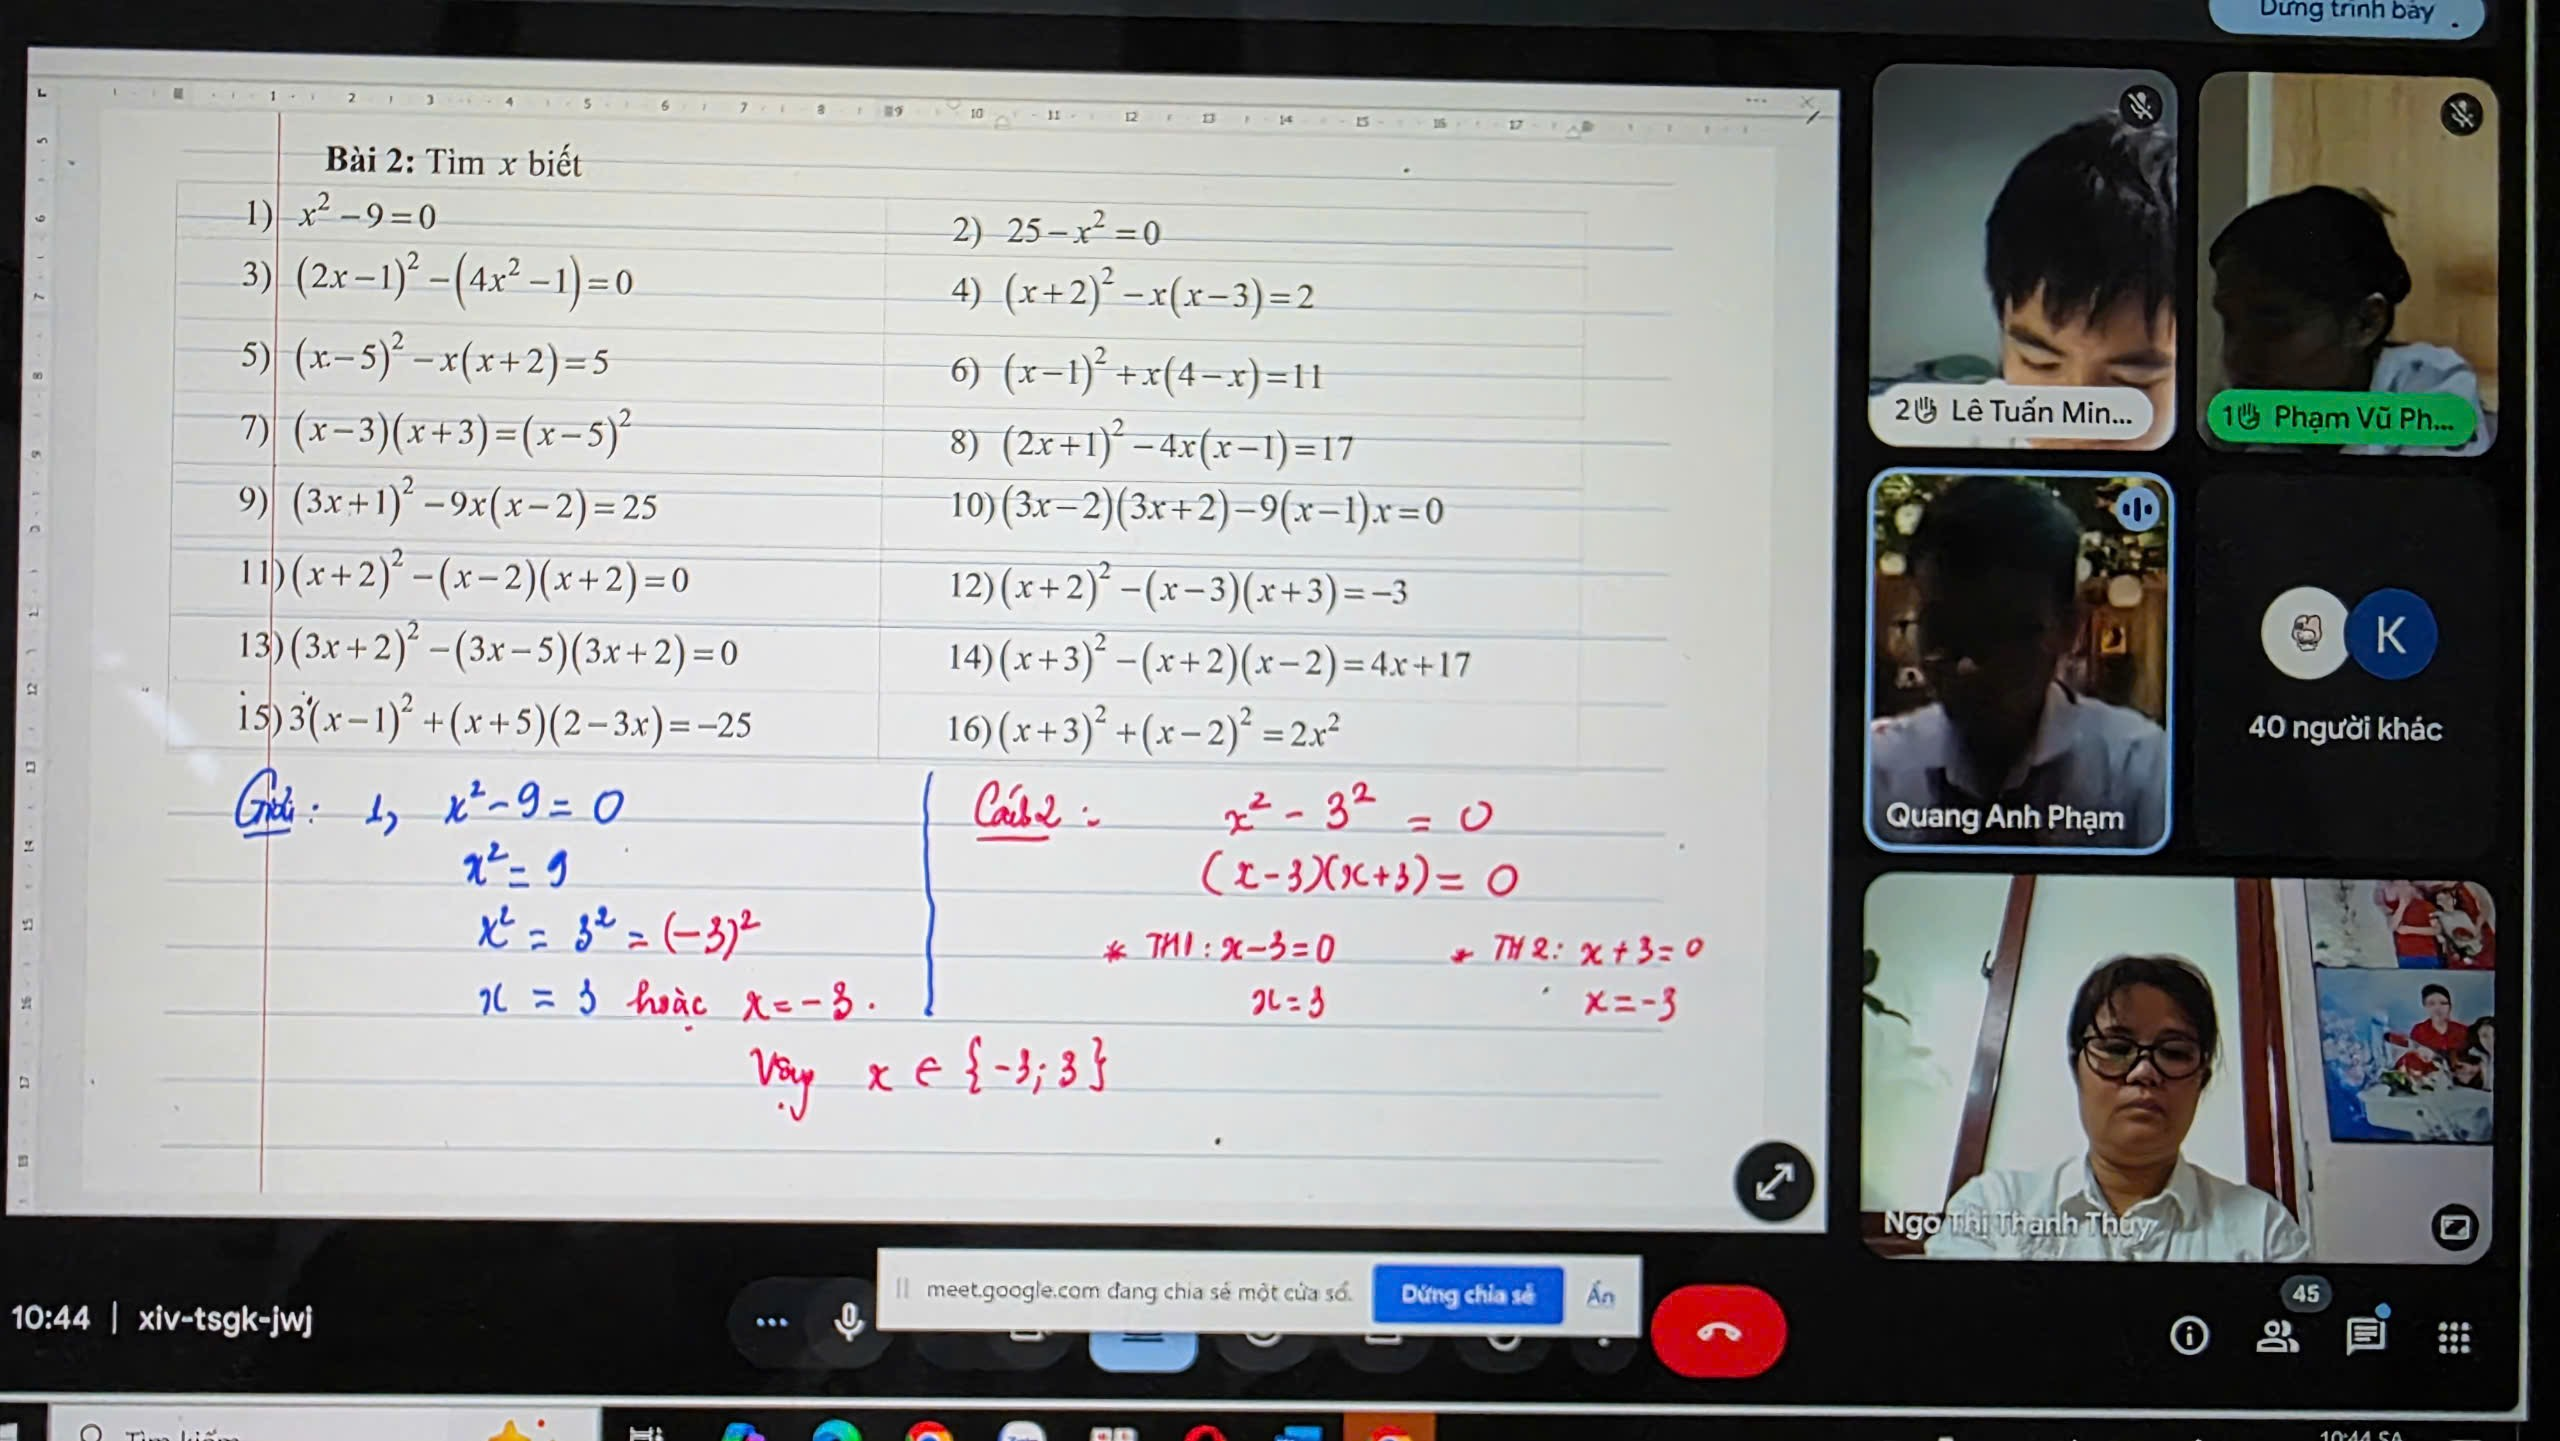 Dừng trình bày
1 2 3 4 5 6 7 8 9 10 11 12 13 14 15 16 17
Bài 2: Tìm x biết
1) x² − 9 = 0
2) 25 − x² = 0
3) (2x − 1)² − (4x² − 1) = 0
4) (x + 2)² − x(x − 3) = 2
5) (x − 5)² − x(x + 2) = 5
6) (x − 1)² + x(4 − x) = 11
7) (x − 3)(x + 3) = (x − 5)²
8) (2x + 1)² − 4x(x − 1) = 17
9) (3x + 1)² − 9x(x − 2) = 25
10) (3x − 2)(3x + 2) − 9(x − 1)x = 0
11) (x + 2)² − (x − 2)(x + 2) = 0
12) (x + 2)² − (x − 3)(x + 3) = −3
13) (3x + 2)² − (3x − 5)(3x + 2) = 0
14) (x + 3)² − (x + 2)(x − 2) = 4x + 17
15) 3(x − 1)² + (x + 5)(2 − 3x) = −25
16) (x + 3)² + (x − 2)² = 2x²
Giải: 1, x² − 9 = 0
x² = 9
x² = 3² = (−3)²
x = 3 hoặc x = −3.
Cách 2: x² − 3² = 0
(x − 3)(x + 3) = 0
* TH1: x − 3 = 0
x = 3
* TH2: x + 3 = 0
x = −3
Vậy x ∈ {−3; 3}
2 Lê Tuấn Min...
1 Phạm Vũ Ph...
Quang Anh Phạm
K
40 người khác
Ngô Thị Thanh Thúy
meet.google.com đang chia sẻ một cửa sổ.
Dừng chia sẻ
Ẩn
10:44 | xiv-tsgk-jwj
45
Tìm kiếm
10:44 SA